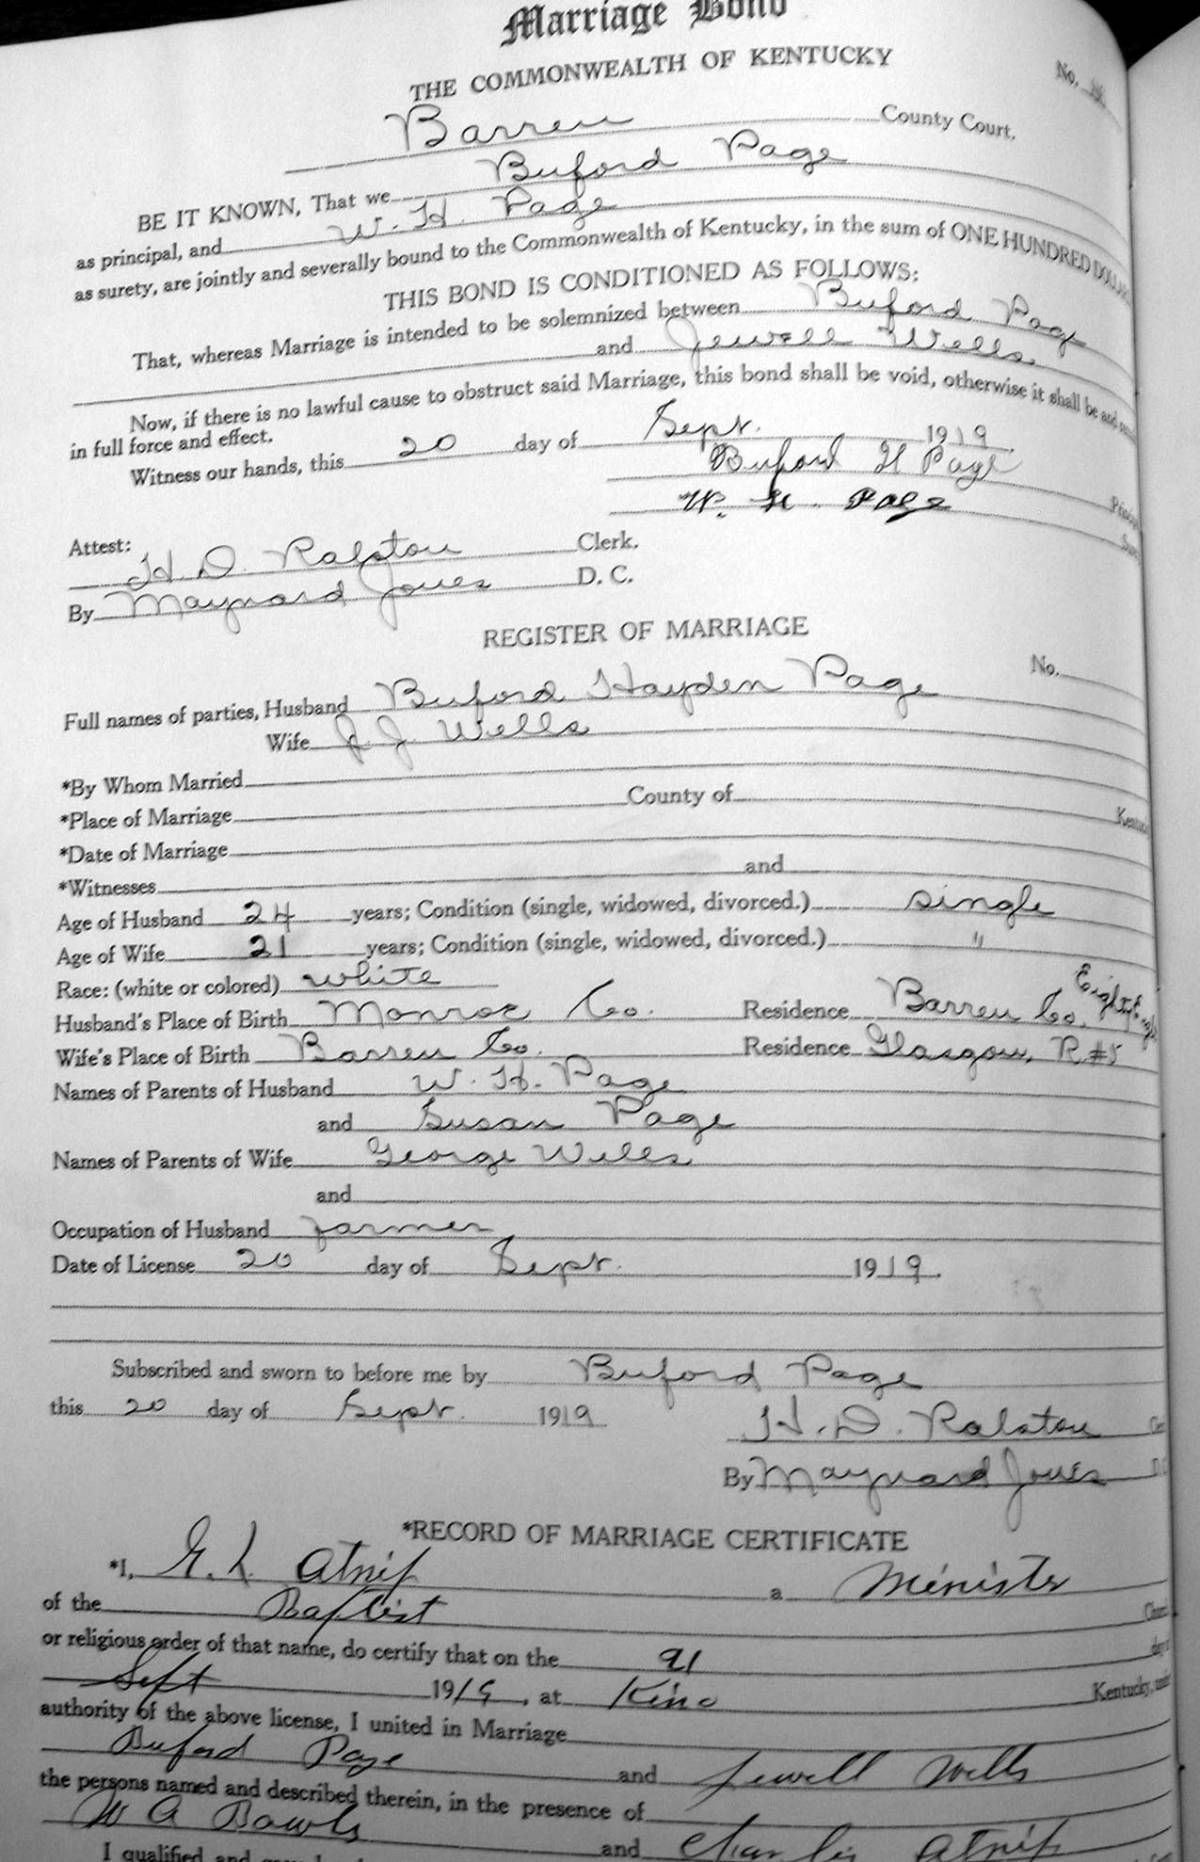 Marriage Bond
THE COMMONWEALTH OF KENTUCKY
No.
Barren County Court.
BE IT KNOWN, That we Buford Page
as principal, and W. H. Page
as surety, are jointly and severally bound to the Commonwealth of Kentucky, in the sum of ONE HUNDRED DOLLARS
THIS BOND IS CONDITIONED AS FOLLOWS:
That, whereas Marriage is intended to be solemnized between Buford Page
and Jewell Wells.
Now, if there is no lawful cause to obstruct said Marriage, this bond shall be void, otherwise it shall be and
in full force and effect.
Witness our hands, this 20 day of Sept. 1919
Buford H Page
W. H. Page
Attest:
H. D. Ralston Clerk.
By Maynard Jones D. C.
REGISTER OF MARRIAGE
No.
Full names of parties, Husband Buford Hayden Page
Wife J. J. Wells
*By Whom Married
*Place of Marriage County of
*Date of Marriage
*Witnesses and
Age of Husband 24 years; Condition (single, widowed, divorced.) single
Age of Wife 21 years; Condition (single, widowed, divorced.) "
Race: (white or colored) white
Husband's Place of Birth Monroe Co. Residence Barren Co. Eighty Eight
Wife's Place of Birth Barren Co. Residence Glasgow, R.#5
Names of Parents of Husband W. H. Page
and Susan Page
Names of Parents of Wife George Wells
and
Occupation of Husband farmer
Date of License 20 day of Sept. 1919.
Subscribed and sworn to before me by Buford Page
this 20 day of Sept. 1919
H. D. Ralston
By Maynard Jones
*RECORD OF MARRIAGE CERTIFICATE
*I, Atnip a Minister
of the Baptist
or religious order of that name, do certify that on the 21
Sept 1919, at Kino Kentucky,
authority of the above license, I united in Marriage
Buford Page and Jewell Wells
the persons named and described therein, in the presence of
W A and Charlie Atnip
I qualified and